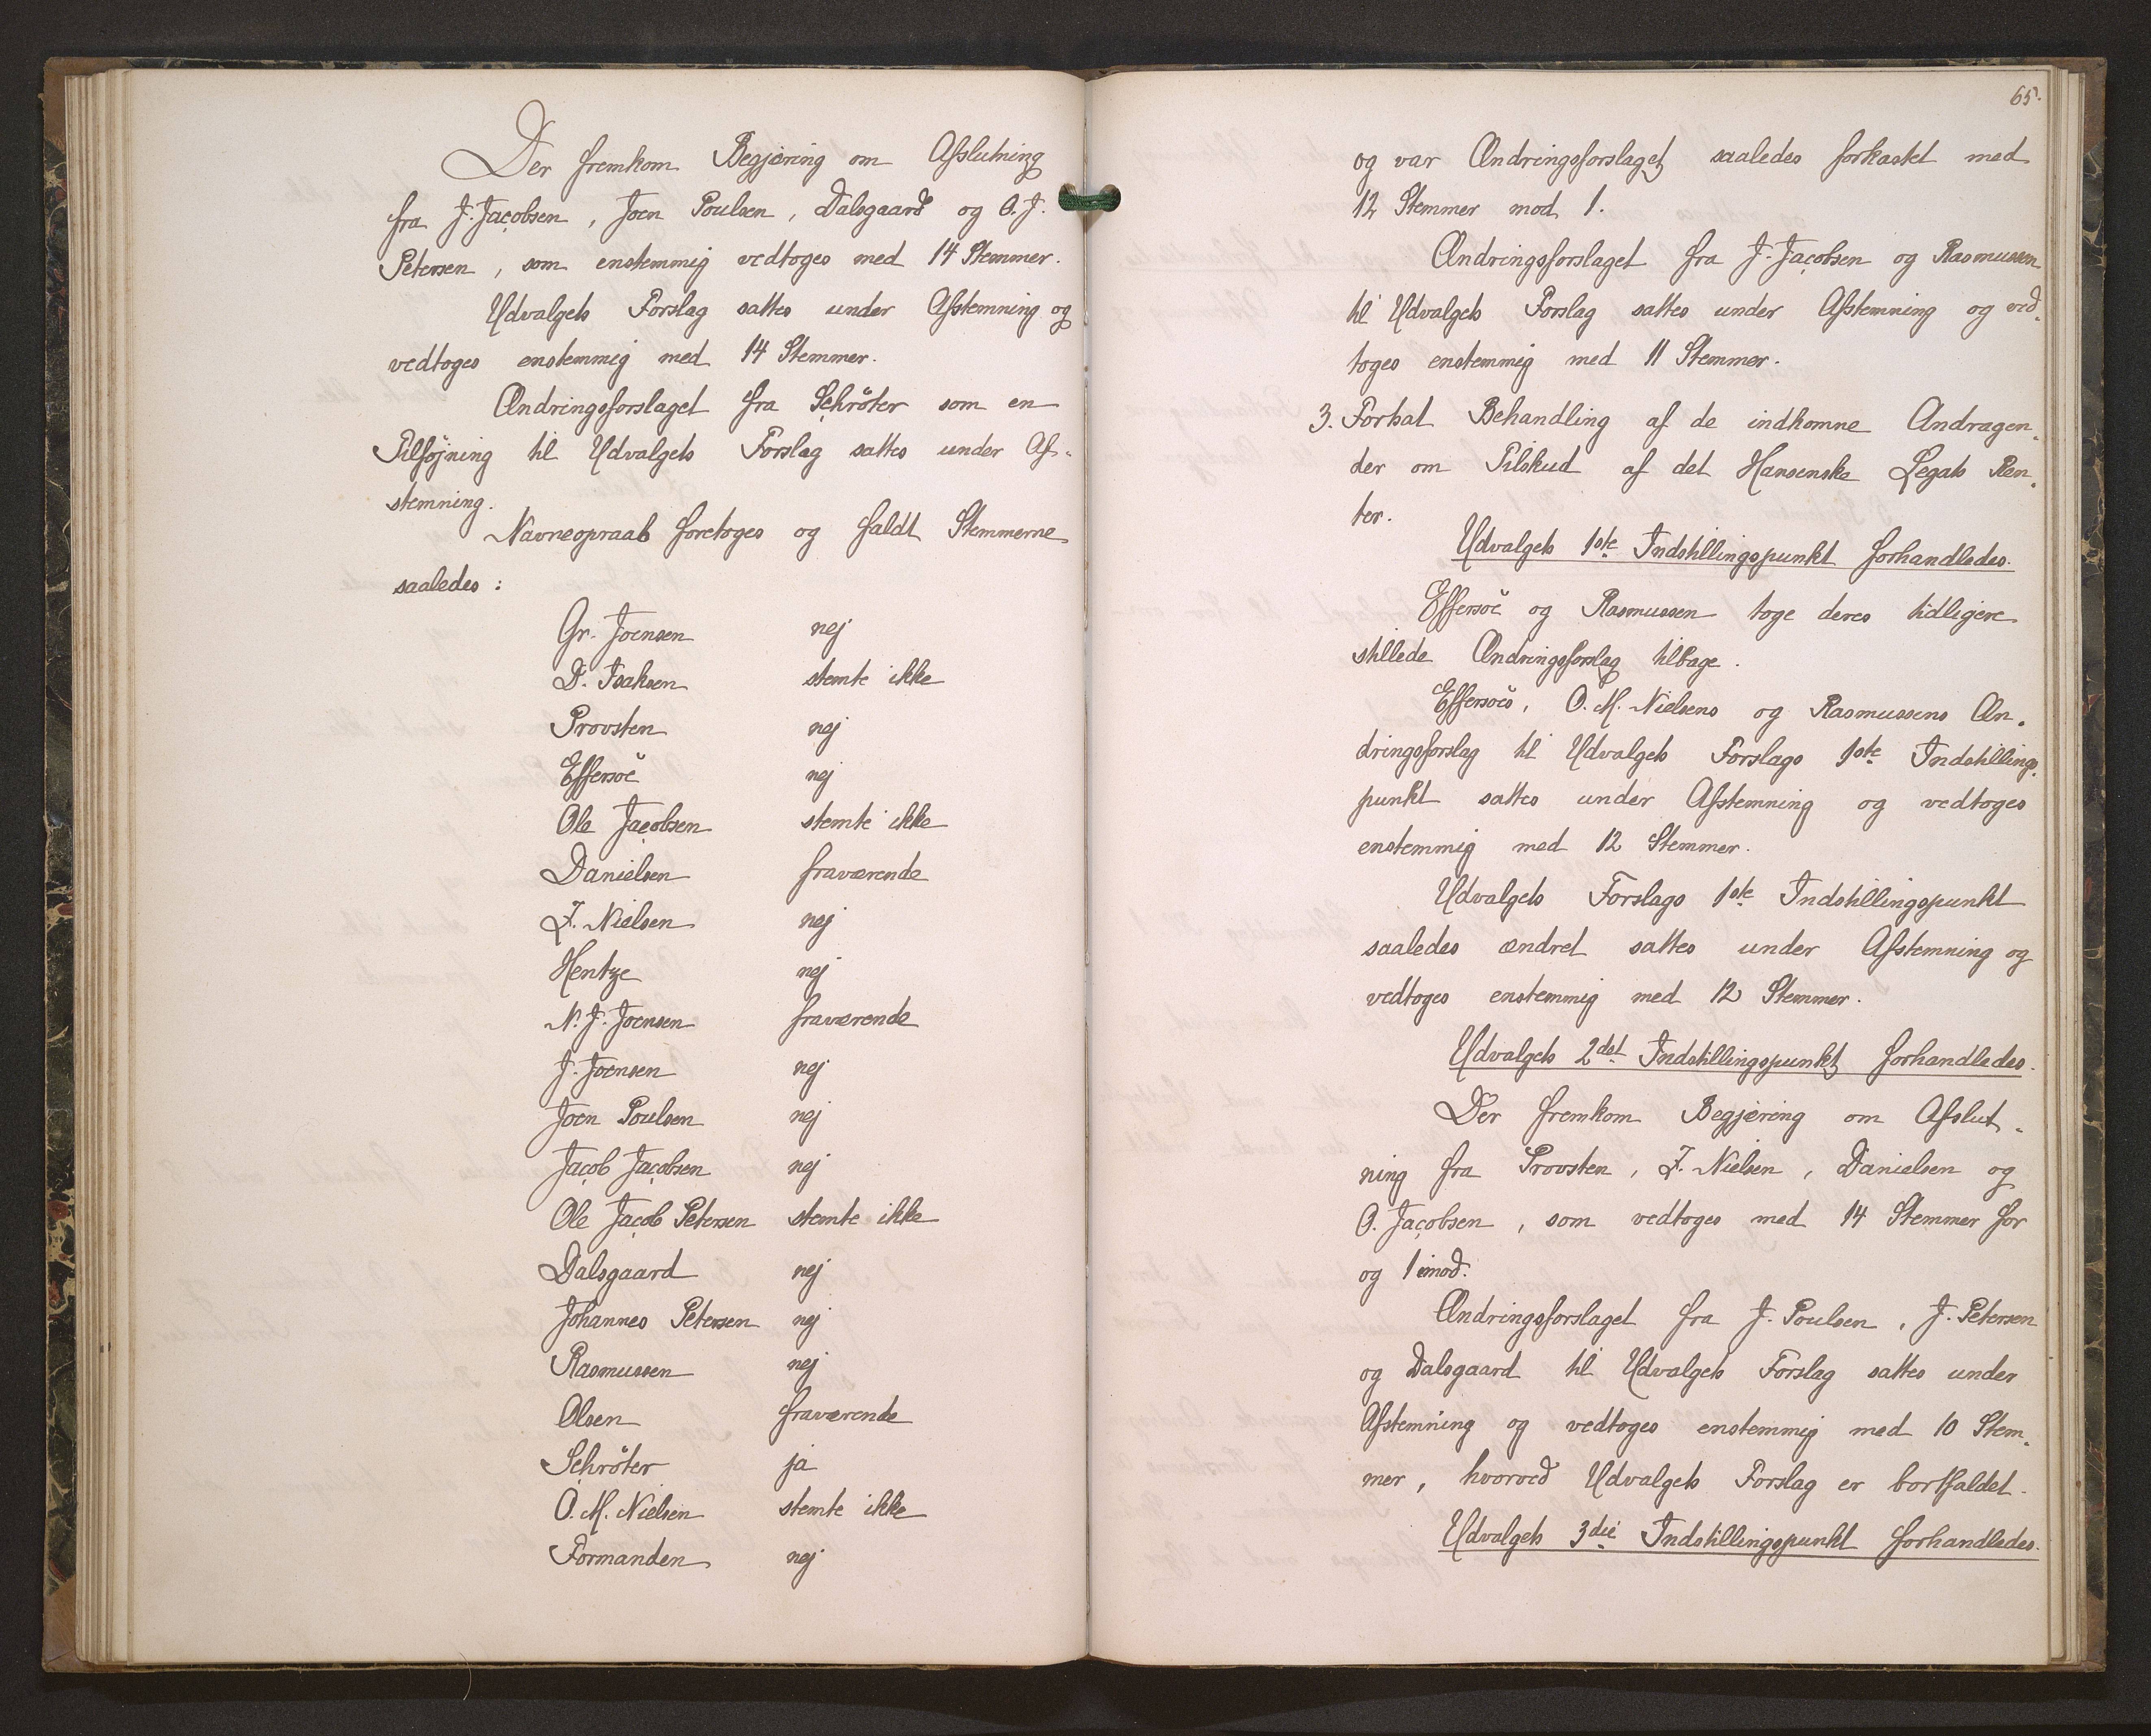 Der fremkom Begjæring om Afslutning
fra J. Jacobsen, Joen Poulsen, Dalsgaard og O. J.
Petersen, som enstemmig vedtoges med 14 Stemmer.
Udvalgets Forslag sattes under Afstemning og
vedtoges enstemmig med 14 Stemmer.
Ændringsforslaget fra Schröter som en
Tilföjning til Udvalgets Forslag sattes under Af-
stemning.
Navneopraab foretoges og faldt Stemmerne
saaledes:
Gr. Joensen nej
D. Isaksen stemte ikke
Provsten nej
Effersöe nej
Ole Jacobsen stemte ikke
Danielsen fraværende
Z. Nielsen nej
Hentze nej
N. J. Joensen fraværende
J. Joensen nej
Joen Poulsen nej
Jacob Jacobsen nej
Ole Jacob Petersen stemte ikke
Dalsgaard nej
Johannes Petersen nej
Rasmussen nej
Olsen fraværende
Schröter ja
O. M. Nielsen stemte ikke
Formanden nej
65.
og var Ændringsforslaget saaledes forkastet med
12 Stemmer mod 1.
Ændringsforslaget fra J. Jacobsen og Rasmussen
til Udvalgets Forslag sattes under Afstemning og ved-
toges enstemmig med 11 Stemmer.
3. Fortsat Behandling af de indkomne Andragen-
der om Tilskud af det Hansenske Legats Ren-
ter.
Udvalgets 1ste Indstillingspunkt forhandledes.
Effersöe og Rasmussen toge deres tidligere
stillede Ændringsforslag tilbage.
Effersöes, O. M. Nielsens og Rasmussens Æn-
dringsforslag til Udvalgets Forslags 1ste Indstillings-
punkt sattes under Afstemning og vedtoges
enstemmig med 12 Stemmer.
Udvalgets Forslags 1ste Indstillingspunkt
saaledes ændret sattes under Afstemning og
vedtoges enstemmig med 12 Stemmer.
Udvalgets 2det Indstillingspunkt forhandledes.
Der fremkom Begjæring om Afslut-
ning fra Provsten, Z. Nielsen, Danielsen og
O. Jacobsen, som vedtoges med 14 Stemmer for
og 1 imod.
Ændringsforslaget fra J. Poulsen, J. Petersen
og Dalsgaard til Udvalgets Forslag sattes under
Afstemning og vedtoges enstemmig med 10 Stem-
mer, hvorved Udvalgets Forslag er bortfaldet.
Udvalgets 3die Indstillingspunkt forhandledes.